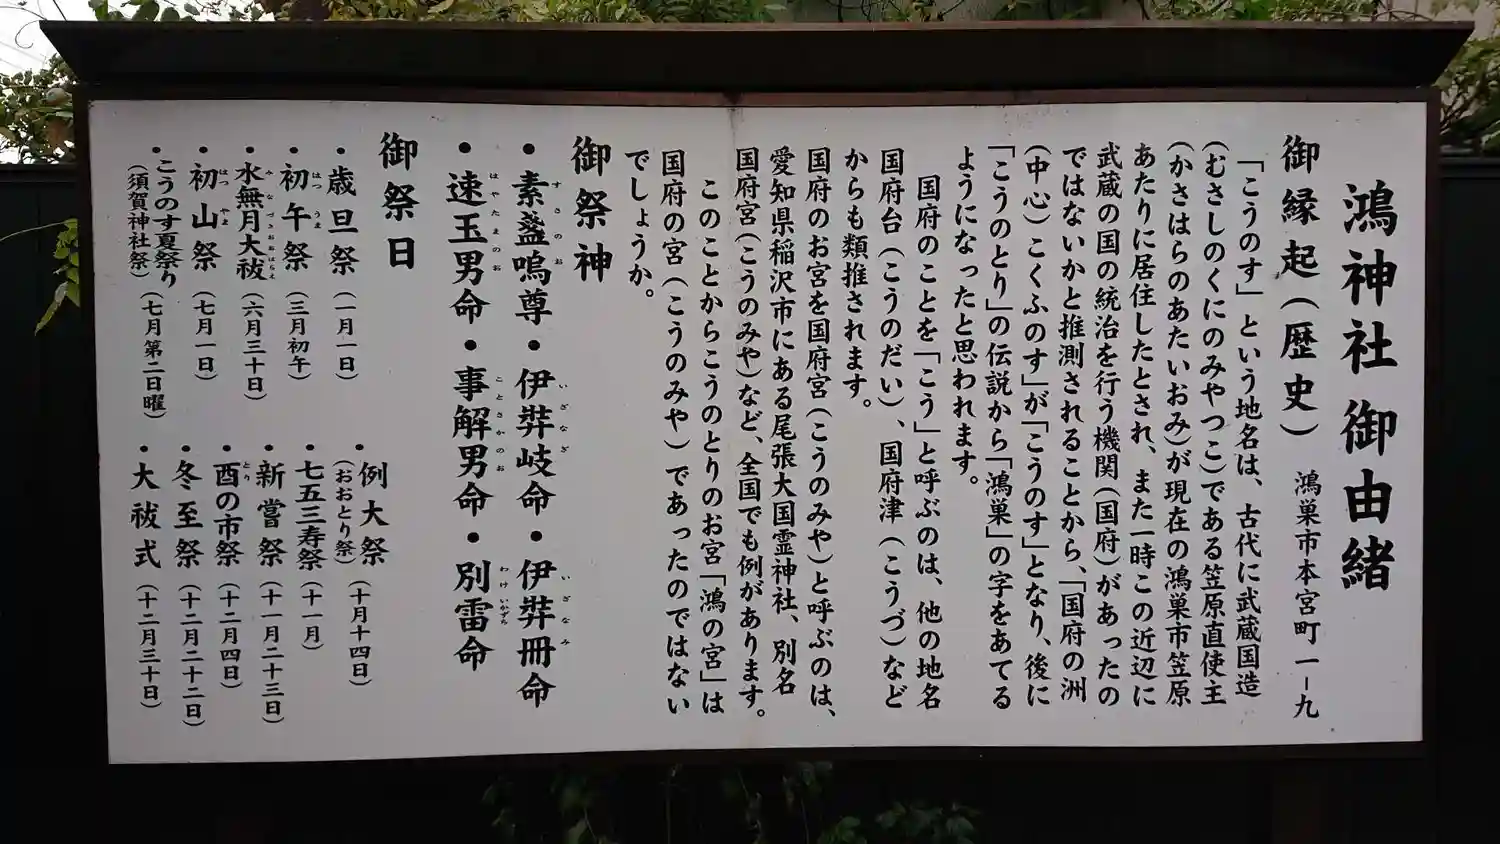 鴻神社 御由緒
御縁起(歴史) 鴻巣市本宮町一ー九
「こうのす」という地名は、古代に武蔵国造
(むさしのくにのみやつこ)である笠原直使主
(かさはらのあたいおみ)が現在の鴻巣市笠原
あたりに居住したとされ、また一時この近辺に
武蔵の国の統治を行う機関(国府)があったの
ではないかと推測されることから、「国府の洲
(中心)こくふのす」が「こうのす」となり、後に
「こうのとり」の伝説から「鴻巣」の字をあてる
ようになったと思われます。
国府のことを「こう」と呼ぶのは、他の地名
国府台(こうのだい)、国府津(こうづ)など
からも類推されます。
国府のお宮を国府宮(こうのみや)と呼ぶのは、
愛知県稲沢市にある尾張大国霊神社、別名
国府宮(こうのみや)など、全国でも例があります。
このことからこうのとりのお宮「鴻の宮」は
国府の宮(こうのみや)であったのではない
でしょうか。
御祭神
・素盞嗚尊・伊弉岐命・伊弉冊命
すさのお いざなぎ いざなみ
・速玉男命・事解男命・別雷命
はやたまのお ことさかのお わけいかずち
御祭日
・歳旦祭(一月一日)
・初午祭(三月初午)
はつうま
・水無月大祓(六月三十日)
みなづきおおはらえ
・初山祭(七月一日)
はつやま
・こうのす夏祭り
(須賀神社祭)(七月第二日曜)
・例大祭
(おおとり祭)(十月十四日)
・七五三寿祭(十一月)
・新嘗祭(十一月二十三日)
・酉の市祭(十二月四日)
とり
・冬至祭(十二月二十二日)
・大祓式(十二月三十日)